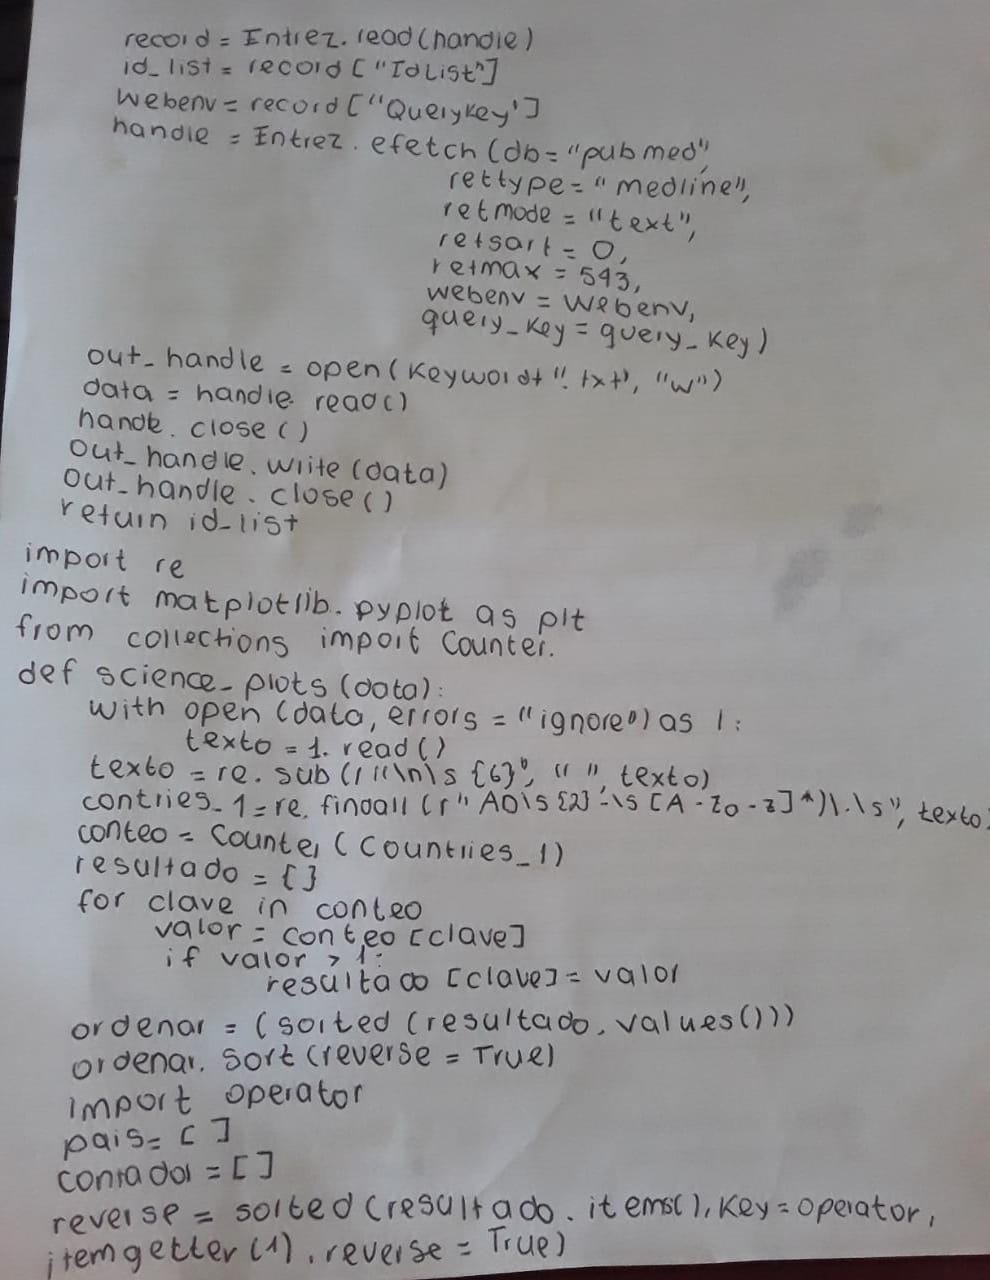 record = Entrez.read(handle)
id_list = record ["IdList"]
Webenv = record ["QueryKey']
handle = Entrez.efetch (db= "pubmed",
rettype = "medline",
retmode = "text",
retsart = 0,
retmax = 543,
webenv = webenv,
query_key = query_key)
out_handle = open (Keyword+ ".txt", "w")
data = handle read()
handle.close ()
out_handle.write (data)
out_handle.close ()
return id_list
import re
import matplotlib.pyplot as plt
from collections import Counter.
def science_plots (data):
with open (data, errors = "ignore") as l:
texto = 1.read ()
texto = re.sub (r"\n\s{6}", " ", texto)
contries_1 = re.findall (r" AD\s{2}-\s [A-Z0-z]*)\.\s", texto)
conteo = Counter (Countries_1)
resultado = {}
for clave in conteo
valor = conteo [clave]
if valor > 1:
resultado [clave] = valor
ordenar = (sorted (resultado.values()))
ordenar.sort (reverse = True)
import operator
pais = [ ]
contador = [ ]
reverse = sorted (resultado.items(), Key = operator,
itemgetter (1), reverse = True)